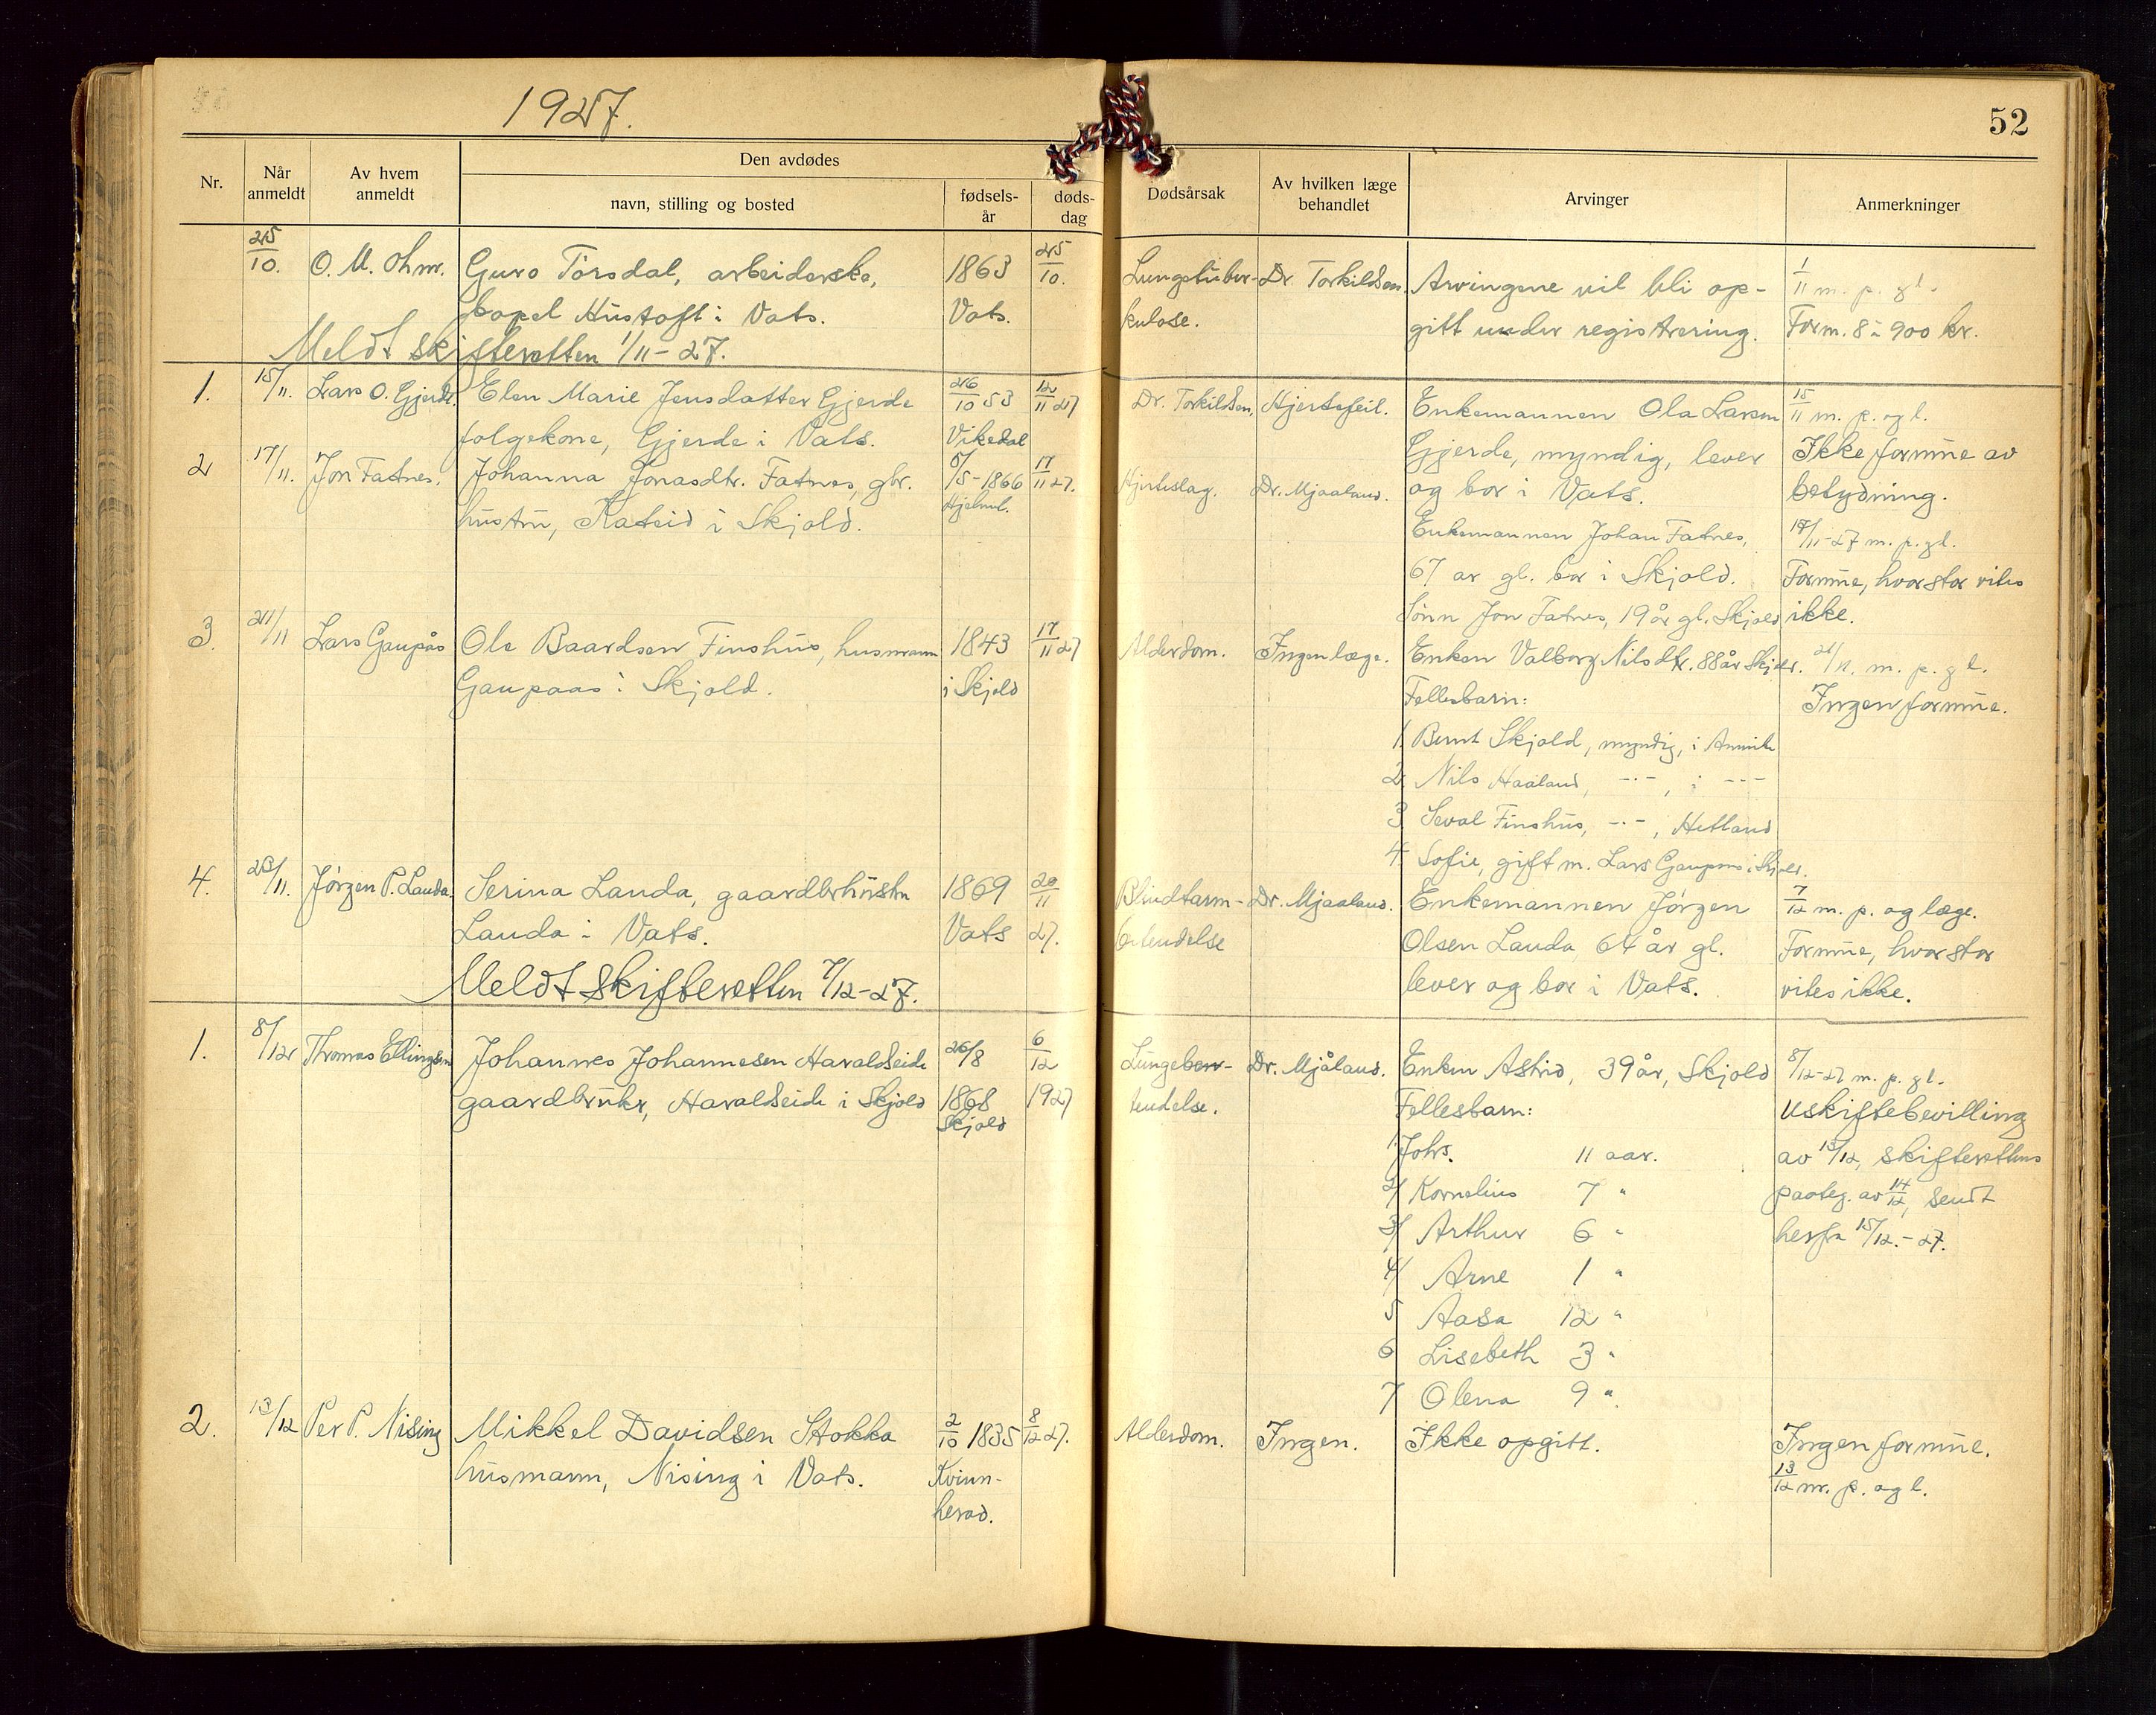 1927.
52
Nr.
Når anmeldt
Av hvem anmeldt
Den avdødes
navn, stilling og bosted
fødsels-år
døds-dag
Dødsårsak
Av hvilken læge behandlet
Arvinger
Anmerkninger
25/10. O. M. Guro Tørsdal, arbeiderske, 1863 25/10. Lungetuber- Dr. Torkildsen. Arvingene vil bli op- 1/11 m. p. gl.
Hustoft i Vats. Vats. kulose. gitt under registrering. Form. 8 à 900 kr.
Meldt skifteretten 1/11-27.
1. 15/11. Lars O. Gjerde. Elen Marie Jensdatter Gjerde 26/10 53 12/11 27 Dr. Torkildsen. Hjertefeil. Enkemannen Ola Larsen 15/11 m. p. og l.
folgekone, Gjerde i Vats. Vikedal Gjerde, myndig, lever Ikke formue av
2 17/11. Jon Fatnes. Johanna Jonasdtr. Fatnes, gbr. /5-1866 17/11 27. Hjerteslag. Dr. Mjaaland. og bor i Vats. betydning.
hustru, i Skjold. Hjelml. Enkemannen Johan Fatnes, 17/11-27 m. p. gl.
67 ar gl. bor i Skjold. Formue, hvor stor vites
Sønn Jon Fatnes, 19 år gl. Skjold ikke.
3. 21/11 Lars Gaupås Ole Baardsen Finshus, husmann 1843 17/11 27 Alderdom. Ingen læge. Enken Valborg Nilsdtr. 88 år Skjold. 21/11. m. p. gl.
Gaupaas i Skjold. i Skjold Fellesbarn: Ingen formue.
1. Bernt Skjold, myndig, i Amerika
2. Nils Haaland, -"-, i -"-
3. Seval Finshus, -"-, Hetland
4. Sofie, gift m. Lars Gaupaas i Skjold.
4. 23/11. Jørgen P. Landa. Serina Landa, gaardbrhustru 1869 20/11 Blindtarm- Dr. Mjaaland. Enkemannen Jørgen 7/12 m. p. og læge.
Landa i Vats. Vats 27. betendelse Olsen Landa 64 år gl. Formue, hvor stor
Meldt Skifteretten 7/12-27. lever og bor i Vats. vites ikke.
1. 8/12 Thomas Ellingsen Johannes Johannesen Haraldseide 26/8 6/12 Lungebe- Dr. Mjåland. Enken Astrid, 39 år, Skjold 8/12-27 m. p. gl.
gaardbruker, Haraldseide i Skjold 1868 1927 tendelse. Fellesbarn: Uskiftebevilling
Skjold
1. Johs. 11 aar. av 13/12, skifterettens
2/ Kornelius 7 " paateg. av 14/12, sendt
3/ Arthur 6 " herfra 15/12.-27.
4/ Arne 1 "
5 Aasa 12 "
6 Lisebeth 3 "
7 Olena 9 "
2. 13/12 Per P. Nising Mikkel Davidsen Stokka 2/10 1835 8/12 27. Alderdom. Ingen. Ikke opgitt. Ingen formue.
husmann, Nising i Vats. Kvinn- 13/12 m. p. og l.
herad.